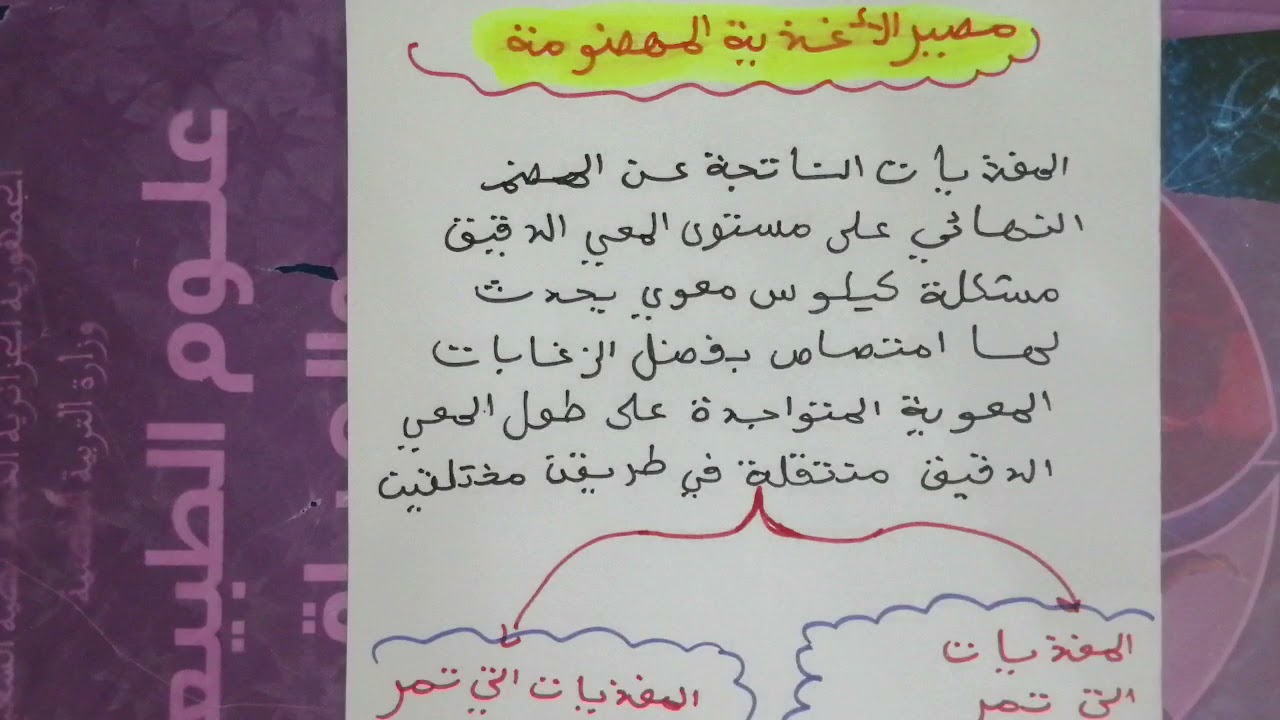 مصير الأغذية المهضومة
المغذيات الناتجة عن الهضم
النهائي على مستوى المعي الدقيق
مشكلة كيلوس معوي يحدث
لها امتصاص بفضل الزغابات
المعوية المتواجدة على طول المعي
الدقيق منتقلة في طريقين مختلفين
المغذيات
التي تمر
المغذيات التي تمر
علوم الطبيعة
والحياة
الجمهورية الجزائرية
وزارة التربية الوطنية